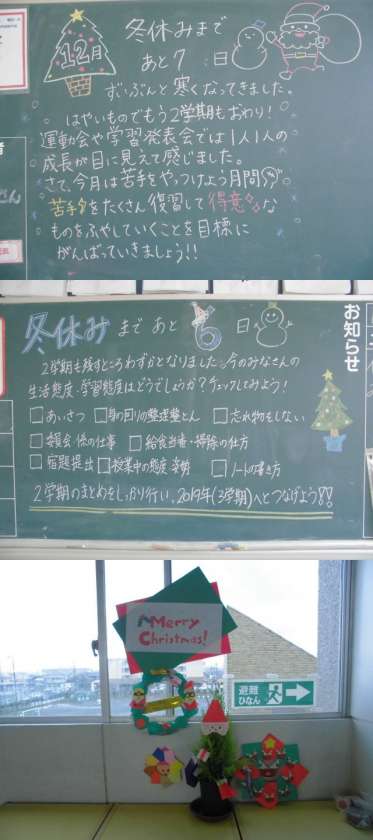 12月
冬休みまで
あと7日
ずいぶんと寒くなってきました。
はやいものでもう2学期もおわり!
運動会や学習発表会では1人1人の
成長が目に見えて感じました。
さて、今月は苦手をやっつけよう月間
苦手をたくさん復習して得意な
ものをふやしていくことを目標に
がんばっていきましょう!!
冬休みまであと6日
お知らせ
2学期も残すところわずかとなりました。今のみなさんの
生活態度・学習態度はどうでしょうか?チェックしてみよう!
□あいさつ □身の回りの整理整とん □忘れ物をしない
□委員会・係の仕事 □給食当番・掃除の仕方
□宿題提出 □授業中の態度・姿勢 □ノートの書き方
2学期のまとめをしっかり行い、2019年(3学期)へとつなげよう!!
Merry
Christmas!
避難
ひなん